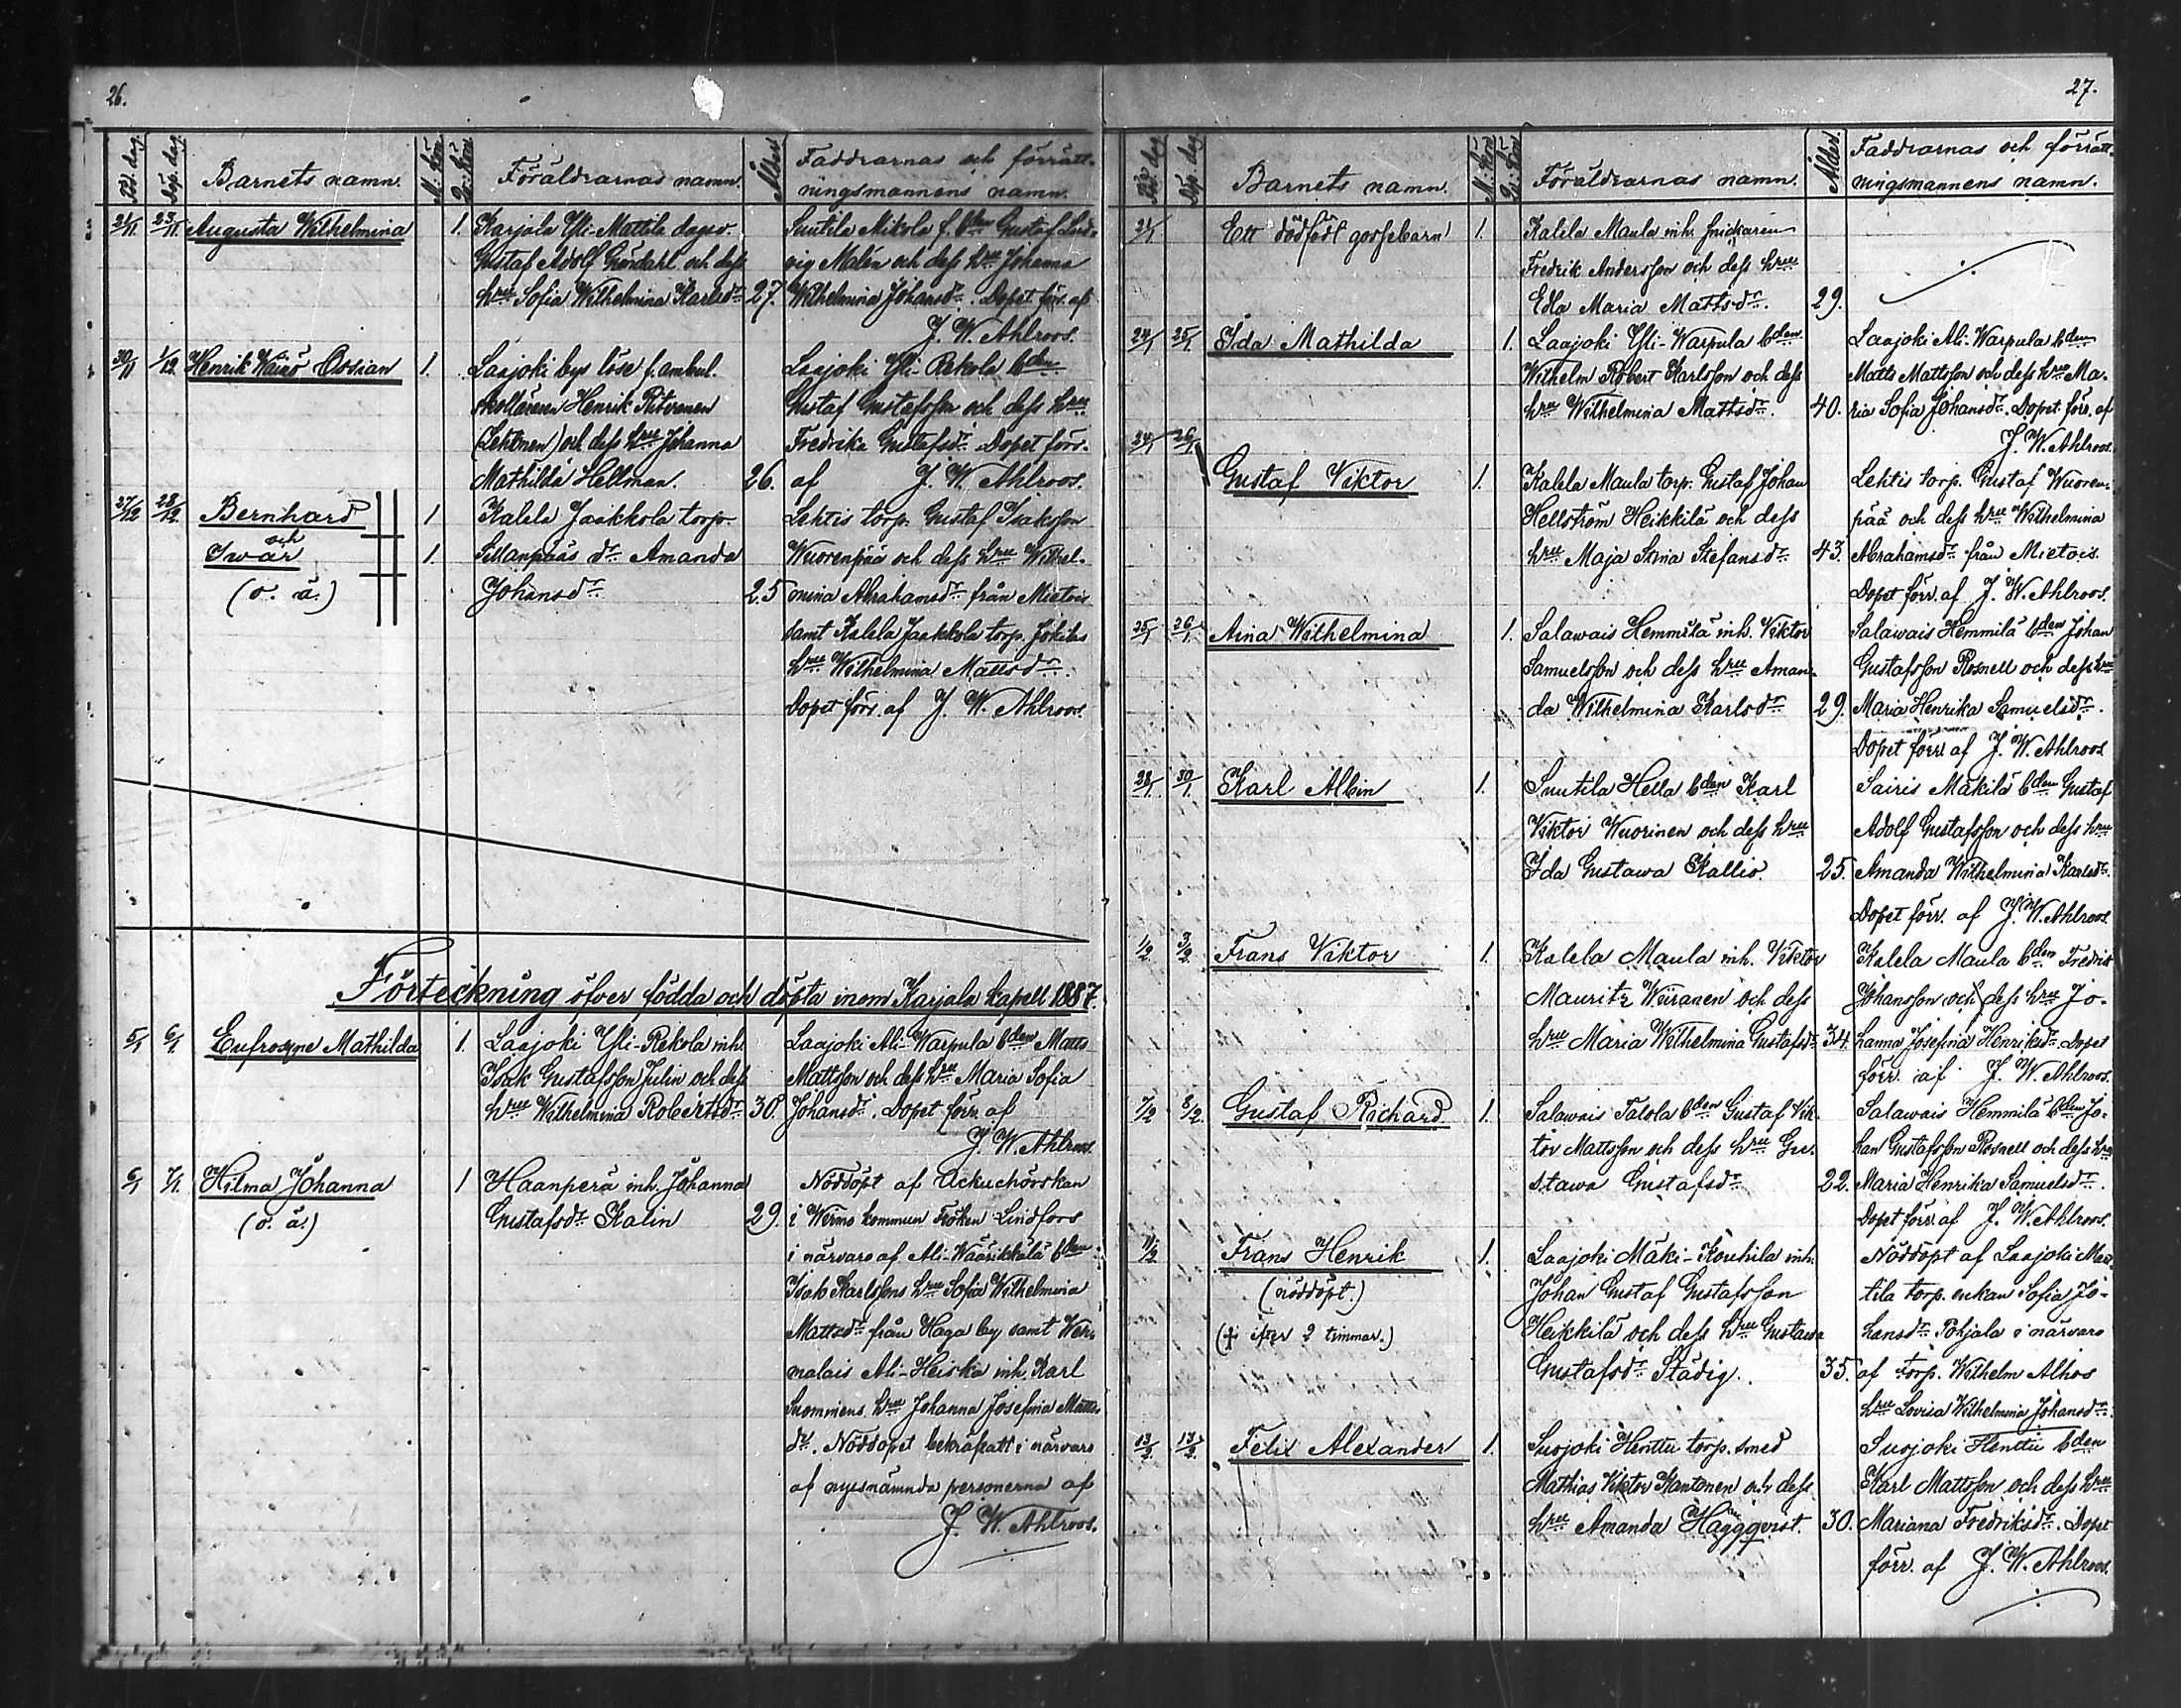 26.
Föd. dag.
Döp. dag.
Barnets namn.
M. kön
Qv. kön
Föräldrarnas namn.
Ålder
Faddrarnas och förrätt-
ningsmannens namn.
21/11 23/11 Augusta Wilhelmina 1. Karjala Yli-Mattila dagsv.
Gustaf Adolf Gröndahl och dess
hru Sofia Wilhelmina Karlsdr 27.
Suutila Mikola f. bden Gustaf Lud-
vig Malén och dess hru Johanna
Wilhelmina Johansdr. Dopet förr. af
J. W. Ahlroos.
30/11 1/12 Henrik Wäinö Ossian 1. Laajoki bys löse f. ambul.
skolläraren Henrik Ritvanen
(Lehtonen) och dess hru Johanna
Mathilda Hellman. 26.
Laajoki Yli-Rekola bden
Gustaf Gustafsson och dess hru
Fredrika Gustafsdr. Dopet förr.
af J. W. Ahlroos.
27/12 28/12 Bernhard 1
och
Iwar 1.
(o. ä.)
Kalela Jaakkola torp.
Sillanpääs dr Amanda
Johansdr 25
Lehtis torp. Gustaf Isaksson
Wuorenpää och dess hru Wilhel-
mina Abrahamsdr från Mietois
samt Kalela Jaakkola torp. Jokelas
hru Wilhelmina Mattsdr.
Dopet förr. af J. W. Ahlroos.
Förteckning öfver födda och döpta inom Karjala kapell 1887.
5/1 6/1 Eufrosyne Mathilda 1. Laajoki Yli-Rekola inh.
Isak Gustafsson Julin och dess
hru Wilhelmina Robertsdr 30.
Laajoki Ali-Warpula bden Matts
Mattsson och dess hru Maria Sofia
Johansdr. Dopet förr. af
J. W. Ahlroos.
6/1 7/1 Hilma Johanna 1 Haanperä inh. Johanna
(o. ä.) Gustafsdr Kalin 29.
Nöddöpt af Ackuchörskan
i Wirmo kommun Fröken Lindfors
i närvaro af Ali-Wäärikkälä bden
Isak Karlssons hru Sofia Wilhelmina
Mattsdr från Haga by samt Weh-
malais Ali-Heiskä inh. Karl
Suominens hru Johanna Josefina Matts-
dr. Nöddopet bekräftatt i närvaro
af nyssnämnda personerna af
J. W. Ahlroos.
27.
Föd. dag
Döp. dag
Barnets namn.
M. kön
Qv. kön
Föräldrarnas namn.
Ålder.
Faddrarnas och förrätt-
ningsmannens namn.
21/1 Ett dödfödt gossebarn 1. Kalela Maula inh. snickaren
Fredrik Andersson och dess hru
Edla Maria Mattsdr. 29.
24/1 25/1 Ida Mathilda 1. Laajoki Yli-Warpula bden
Wilhelm Robert Karlsson och dess
hru Wilhelmina Mattsdr. 40.
Laajoki Ali-Warpula bden
Matts Mattsson och dess hru Ma-
ria Sofia Johansdr. Dopet förr. af
J. W. Ahlroos.
24/1 26/1 Gustaf Viktor 1. Kalela Maula torp. Gustaf Johan
Hellström Heikkilä och dess
hru Maja Stina Stefansdr 43.
Lehtis torp. Gustaf Wuoren-
pää och dess hru Wilhelmina
Abrahamsdr från Mietois.
Dopet förr. af J. W. Ahlroos.
25/1 26/1 Aina Wilhelmina 1. Salawais Hemmilä inh. Viktor
Samuelsson och dess hru Aman-
da Wilhelmina Karlsdr 29.
Salawais Hemmilä bden Johan
Gustafsson Rosnell och dess hru
Maria Henrika Samuelsdr.
Dopet förr. af J. W. Ahlroos
28/1 30/1 Karl Albin 1. Suutila Hella bden Karl
Viktor Wuorinen och dess hru
Ida Gustawa Kallio. 25.
Sairis Mäkilä bden Gustaf
Adolf Gustafsson och dess hru
Amanda Wilhelmina Karlsdr.
Dopet förr. af J. W. Ahlroos.
1/2 3/2 Frans Viktor 1. Kalela Maula inh. Viktor
Mauritz Weiranen och dess
hru Maria Wilhelmina Gustafsdr 34.
Kalela Maula bden Fredrik
Johansson och dess hru Jo-
hanna Josefina Henriksdr. Dopet
förr. af J. W. Ahlroos.
7/2 8/2 Gustaf Richard 1. Salawais Talola bden Gustaf Vik-
tor Mattsson och dess hru Gu-
stawa Gustafsdr 22.
Salawais Hemmilä bden Jo-
han Gustafsson Rosnell och dess hru
Maria Henrika Samuelsdr.
Dopet förr. af J. W. Ahlroos.
11/2 Frans Henrik 1. Laajoki Mäki-Kouhila inh.
(nöddöpt.) Johan Gustaf Gustafsson
(† efter 2 timmar.) Heikkilä och dess hru Gustawa
Gustafsdr Städig. 35.
Nöddöpt af Laajoki Mat-
tila torp. enkan Sofia Jo-
hansdr Pohjala i närvaro
af torp. Wilhelm Alhos
hru Lovisa Wilhelmina Johansdr.
13/2 13/2 Felix Alexander 1. Suojoki Henttu torp. smed
Mathias Viktor Kantonen och dess
hru Amanda Häggqvist. 30.
Suojoki Henttu bden
Karl Mattsson och dess hru
Mariana Fredriksdr. Dopet
förr. af J. W. Ahlroos.